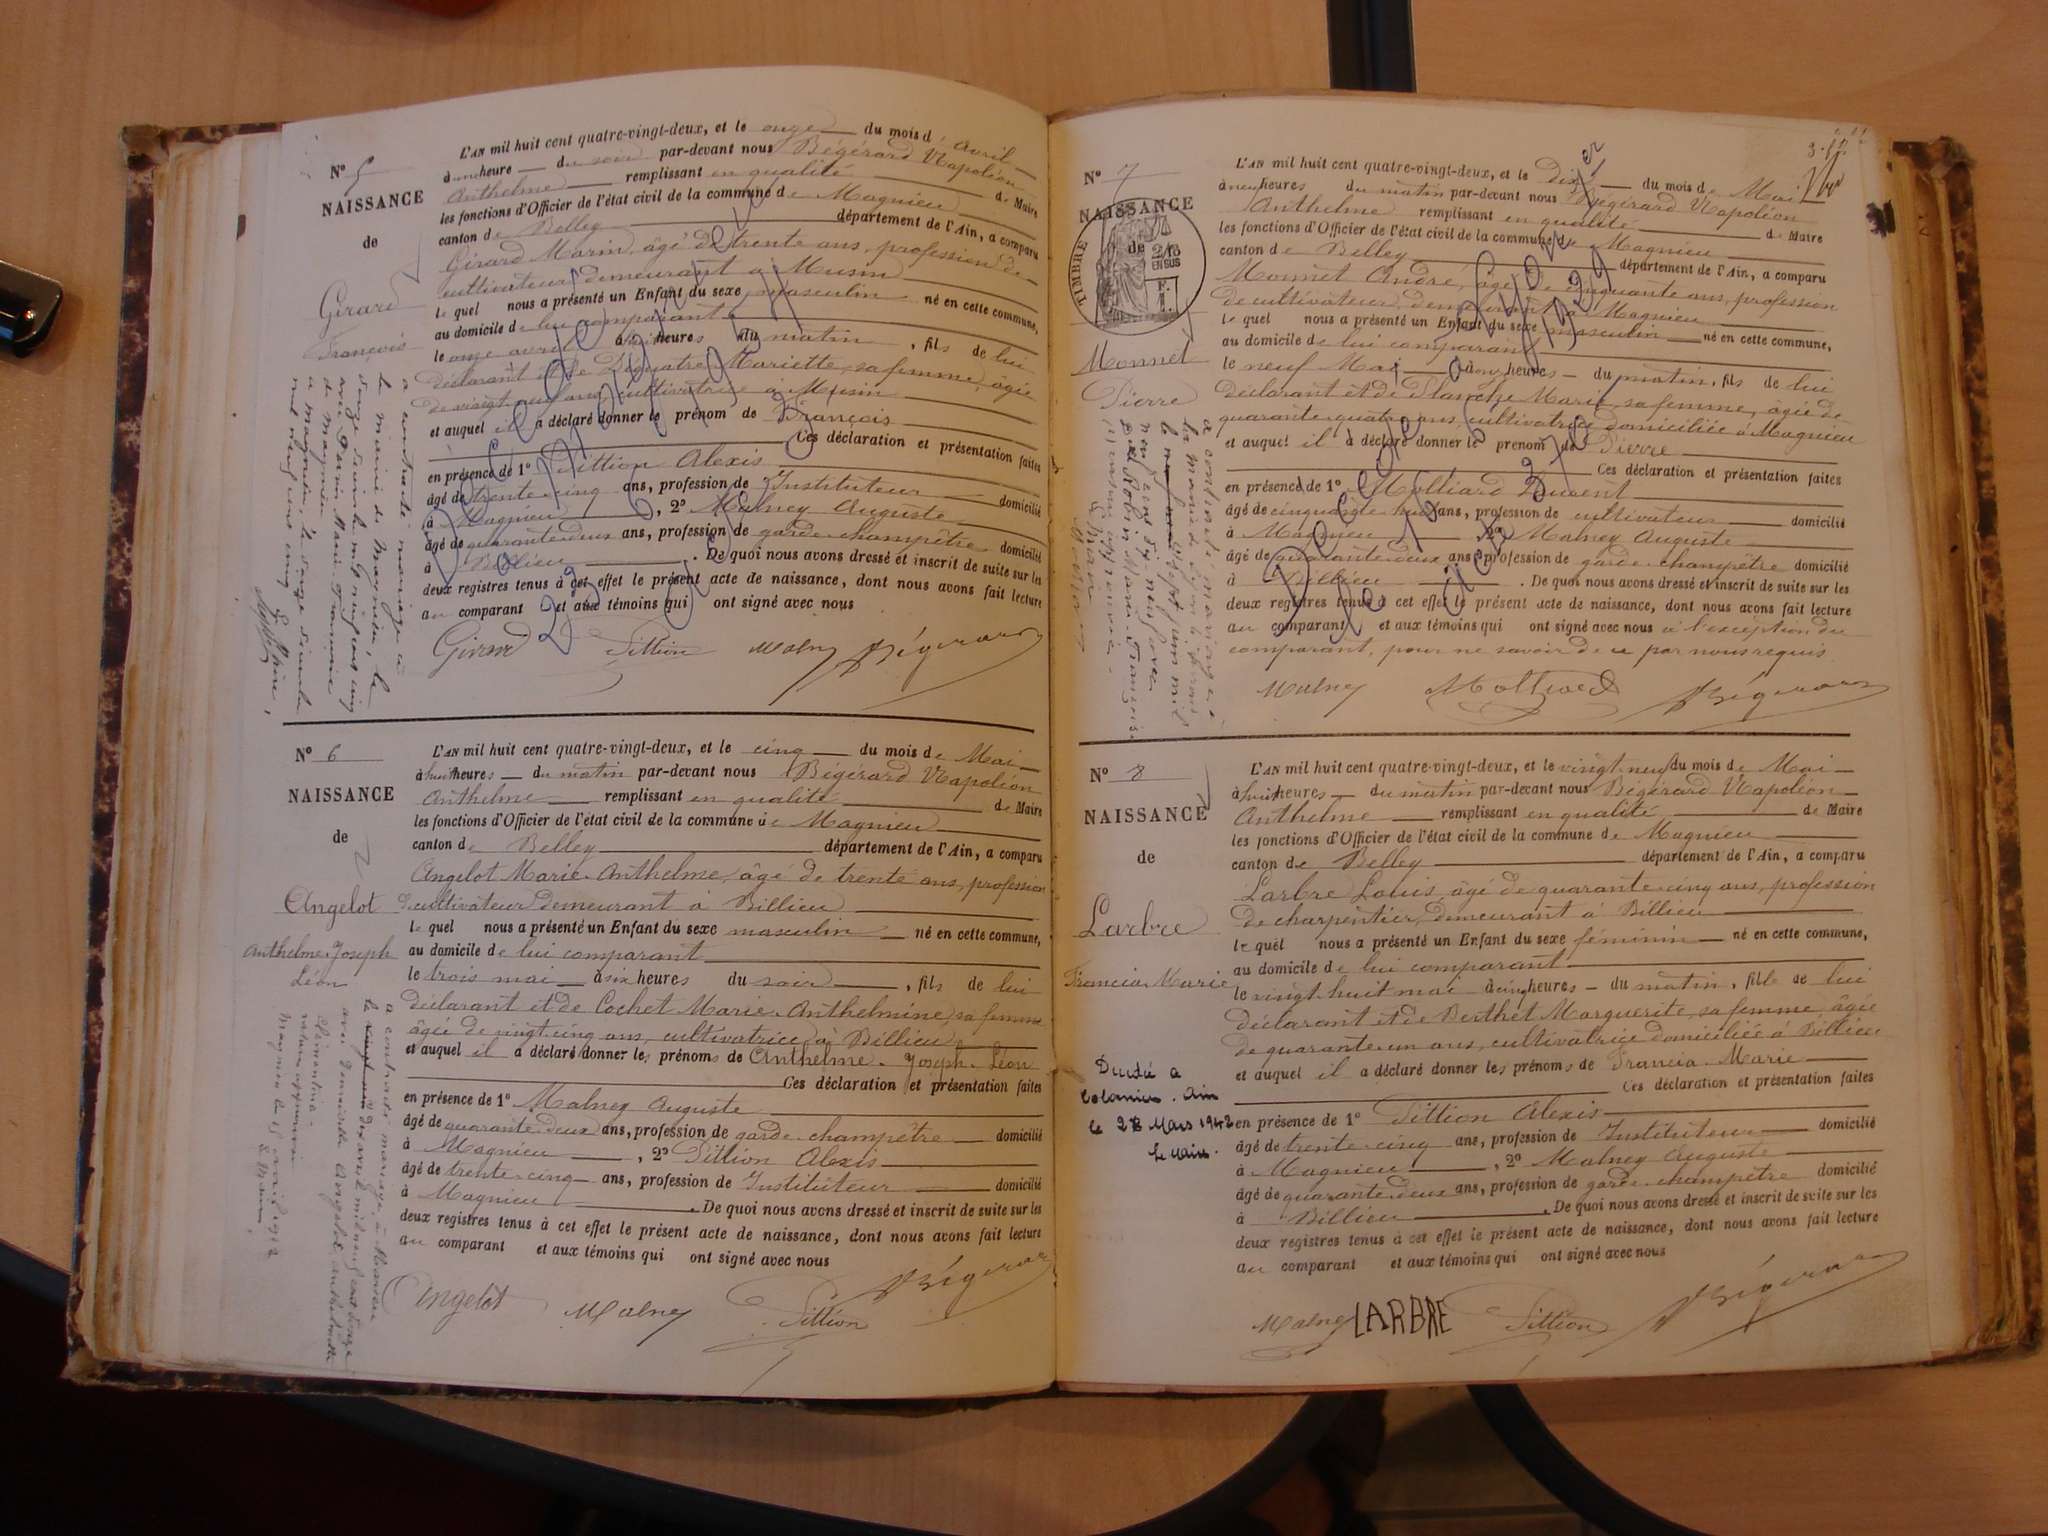 N° 5
NAISSANCE
de
Girard
François
L'AN mil huit cent quatre-vingt-deux, et le onze du mois d'Avril
à une heure du soir par-devant nous Bégérard Napoléon
Anthelme remplissant en qualité de Maire
les fonctions d'Officier de l'état civil de la commune de Magnieu
canton de Belley département de l'Ain, a comparu
Girard Marin, âgé de trente ans, profession de
cultivateur, demeurant à Musin
le quel nous a présenté un Enfant du sexe masculin né en cette commune,
au domicile de lui comparant
le onze avril à heures du matin, fils de lui
déclarant et de Mariette, sa femme, âgée
de vingt neuf ans, cultivatrice à Musin
et auquel il a déclaré donner le prénom de François
Ces déclaration et présentation faites
en présence de 1° Sittion Alexis
âgé de trente-cinq ans, profession de Instituteur domicilié
à Magnieu, 2° Malney Auguste
âgé de quarante deux ans, profession de garde-champêtre domicilié
à Billieu. De quoi nous avons dressé et inscrit de suite sur les
deux registres tenus à cet effet le présent acte de naissance, dont nous avons fait lecture
au comparant et aux témoins qui ont signé avec nous
Girard Sittion Malney Bégérard
a contracté mariage à
la mairie de Magnieu, le
douze mil neuf cent cinq
avec Marie
de Magnieu
à Magnieu, le douze
mil neuf cent cinq
N° 6
NAISSANCE
de
Angelot
Anthelme-Joseph
Léon
L'AN mil huit cent quatre-vingt-deux, et le cinq du mois de Mai
à huit heures du matin par-devant nous Bégérard Napoléon
Anthelme remplissant en qualité de Maire
les fonctions d'Officier de l'état civil de la commune de Magnieu
canton de Belley département de l'Ain, a comparu
Angelot Marie-Anthelme, âgé de trente ans, profession
de cultivateur demeurant à Billieu
le quel nous a présenté un Enfant du sexe masculin né en cette commune,
au domicile de lui comparant
le trois mai à six heures du soir, fils de lui
déclarant et de Cochet Marie-Anthelmine, sa femme
âgée de vingt cinq ans, cultivatrice à Billieu
et auquel il a déclaré donner les prénoms de Anthelme-Joseph-Léon
Ces déclaration et présentation faites
en présence de 1° Malney Auguste
âgé de quarante-deux ans, profession de garde champêtre domicilié
à Magnieu, 2° Sittion Alexis
âgé de trente cinq ans, profession de Instituteur domicilié
à Magnieu. De quoi nous avons dressé et inscrit de suite sur les
deux registres tenus à cet effet le présent acte de naissance, dont nous avons fait lecture
au comparant et aux témoins qui ont signé avec nous
Angelot Malney Sittion Bégérard
a contracté mariage, à
le mil neuf cent douze
avec Demoiselle Angelot
Clémentine
Magnieu le avril 1912
N° 7
NAISSANCE
de
TIMBRE
2/10
EN SUS
Monnet
Pierre
L'AN mil huit cent quatre-vingt-deux, et le dix du mois de Mai
à neuf heures du matin par-devant nous Bégérard Napoléon
Anthelme remplissant en qualité de Maire
les fonctions d'Officier de l'état civil de la commune de Magnieu
canton de Belley département de l'Ain, a comparu
Monnet André, âgé de cinquante ans, profession
de cultivateur, demeurant à Magnieu
le quel nous a présenté un Enfant du sexe masculin né en cette commune,
au domicile de lui comparant
le neuf Mai à onze heures du matin, fils de lui
déclarant et de Marie sa femme, âgée de
quarante-quatre ans, cultivatrice domiciliée à Magnieu
et auquel il a déclaré donner le prénom de Pierre
Ces déclaration et présentation faites
en présence de 1° Molliard
âgé de cinquante huit ans, profession de cultivateur domicilié
à Magnieu 2° Malney Auguste
âgé de quarante deux ans profession de garde-champêtre domicilié
à Billieu. De quoi nous avons dressé et inscrit de suite sur les
deux registres tenus à cet effet le présent acte de naissance, dont nous avons fait lecture
au comparant et aux témoins qui ont signé avec nous à l'exception du
comparant, pour ne savoir de ce par nous requis
Malney Molliard Bégérard
a contracté mariage à
la mairie de
avec Robin Marie-Françoise
N° 8
NAISSANCE
de
Larbre
Francia-Marie
Décédée à
Colomieu. Ain
le 28 Mars 1942
Le Maire.
L'AN mil huit cent quatre-vingt-deux, et le vingt-neuf du mois de Mai
à huit heures du matin par-devant nous Bégérard Napoléon
Anthelme remplissant en qualité de Maire
les fonctions d'Officier de l'état civil de la commune de Magnieu
canton de Belley département de l'Ain, a comparu
Larbre Louis, âgé de quarante-cinq ans, profession
de charpentier, demeurant à Billieu
le quel nous a présenté un Enfant du sexe féminin né en cette commune,
au domicile de lui comparant
le vingt-huit mai à cinq heures du matin, fille de lui
déclarant et de Berthet Marguerite, sa femme, âgée
de quarante-un ans, cultivatrice domiciliée à Billieu
et auquel il a déclaré donner les prénoms de Francia-Marie
Ces déclaration et présentation faites
en présence de 1° Sittion Alexis
âgé de trente-cinq ans, profession de Instituteur domicilié
à Magnieu, 2° Malney Auguste
âgé de quarante-deux ans, profession de garde-champêtre domicilié
à Billieu. De quoi nous avons dressé et inscrit de suite sur les
deux registres tenus à cet effet le présent acte de naissance, dont nous avons fait lecture
au comparant et aux témoins qui ont signé avec nous
Malney LARBRE Sittion Bégérard